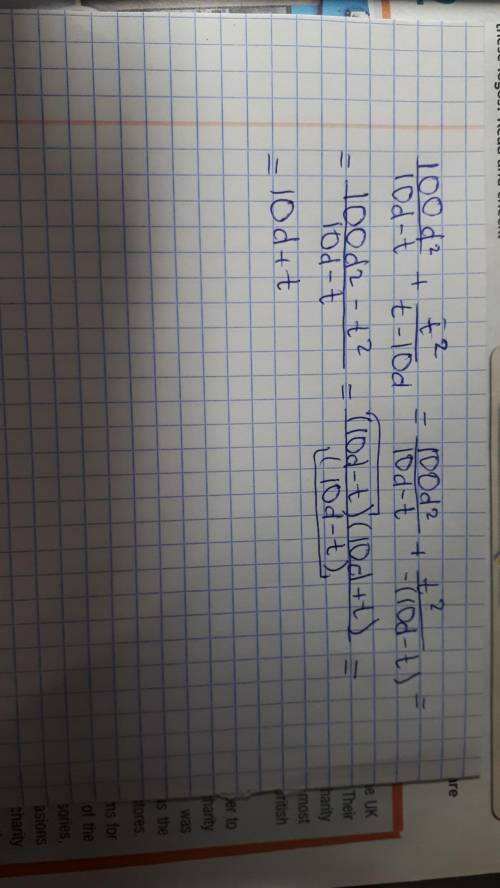 100d²/10d-t + t²/t-10d = 100d²/10d-t + t²/-(10d-t) =
= 100d² - t²/10d-t = (10d-t)(10d+t)/(10d-t) =
= 10d+t
are
e UK
Their
most
ritish
er to
was
s the
tores.
ns for
of the
sories,
asions
charity